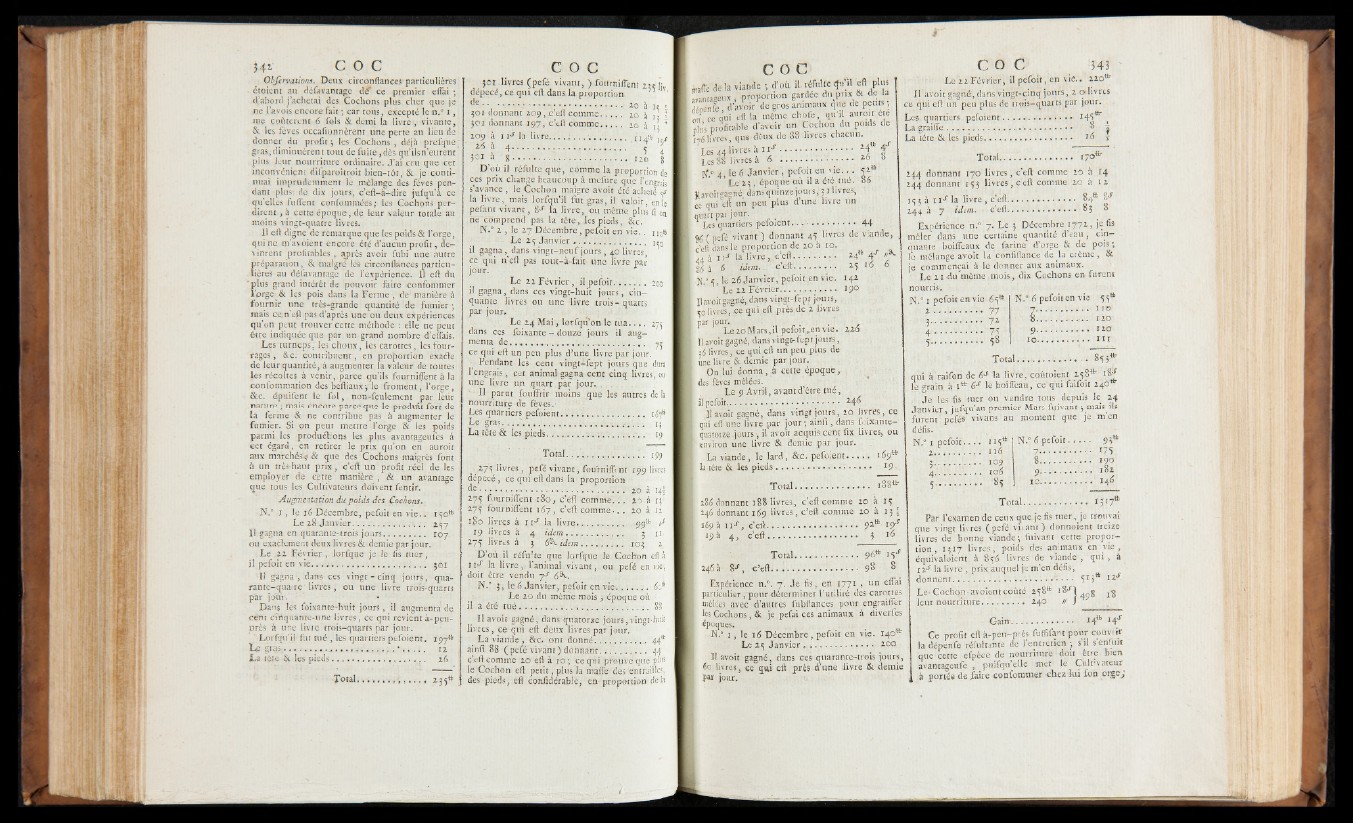 342 COC
Observations. Deux circonstances particulières
étoient au désavantage de ce premier essai ;
d'abord j'achetai des Cochons plus cher que je
ne l'avois encore fait ; car tous, excepté le n.° 1,
me coûtèrent 6 sols & demi la livre, vivante,
& les fèves occasionnèrent une perte au lieu de
donner du profit ; les Cochons, déjà presque
gras, diminuèrent tout de suite, dès qu'ils n'eurent
plus leur nourriture ordinaire. J'ai cru que cet
inconvénient disparoîtroit bien-tôt, & je conti-
nuai imprudemment le mélange des fèves pen-
dant plus de dix jours, c'est-à-dire jusqu'à ce
qu'elles fussent consommées ; les Cochons per-
dirent, à cette époque, de leur valeur totale au
moins vingt-quatre livres.
Il est digne de remarque que les poids & l'orge,
qui ne m'avoient encore été d'aucun profit, de-
vinrent profitables, après avoir subi une autre
préparation, & malgré les circonstances particu-
lières au désavantage de l'expérience. Il est du
plus grand intérêt de pouvoir faire consommer
l'orge & les pois dans la Ferme, de manière à
fournir une très-grande quantité de fumier ;
mais ce n'est pas d'après une ou deux expériences
qu'on peut trouver cette méthode : elle ne peut
être indiquée que par un grand nombre d'essais.
Les turneps, les choux, les carottes, les four-
rages, &c. contribuent, en proportion exacte
de leur quantité, à augmenter la valeur de toutes
les récoltes à venir, parce qu'ils fournissent à la
consommation des bestiaux ; le froment, l'orge,
&c. épuisent le sol, non-seulement par leur
nature ; mais encore parce que le produit sort de
la ferme & ne contribue pas à augmenter le
fumier. Si on peut mettre l'orge & les poids
parmi les productions les plus avantageuses à
cet égard, en retirer le prix qu'on en auroit
aux marchés, & que des Cochons maigres sont
à un très-haut prix, c'est un profit réel de les
employer de cette manière, & un avantage
que tous les Cultivateurs doivent sentir.
Augmentation du poids des Cochons.
N.° 1, le 16 Décembre, pesoit en vie.. 150tt
Le 28 Janvier............... 257
Il gagna en quarante-trois jours......... 107
ou exactement deux livres & demie par jour.
Le 22 Février, lorsque je le fis tuer,
il pesoit en vie................. 301
Il gagna, dans ces vingt-cinq jours, qua-
rante-quatre livres, ou une livre trois-quarts
par jour.
Dans les soixante-huit jours, il augmenta de
cent cinquante-une livres, ce qui revient à-peu-
près à une livre trois-quarts par jour.
Lorsqu'il fut tué, les quartiers pesoient. 197tt
Le gras............... 12
La tête & les pieds............... 26
Total............... 235tt
COC
301 livres (pesé vivant,) fournissent 235 liv.
dépecé, ce qui est dans la proportion
de............... 20 à
301 donnant 209, c'est comme..... 20 à
301 donnant 197, c'est comme..... 20 à
209 à 11s la livre............... 114tt 19s
26 à 4............... 5 4
301 à 8............... 120 8
D'où il résulte que, comme la proportion de
ces prix change beaucoup à mesure que l'engrais
s'avance, le Cochon maigre avoit été acheté
la livre, mais lorsqu'il fut gras, il valoit, en le
pesant vivant, 8s la livre, ou même plus si on
ne comprend pas la tête, les pieds, &c.
N.° 2, le 27 Décembre, pesoit en vie..
Le 25 Janvier............... 150
il gagna, dans vingt-neuf jours, 40 livres,
ce qui n'est pas tout-à-fait une livre par
jour.
Le 22 Février, il pesoit........ 200
il gagna, dans ces vingt-huit jours, cin-
quante livres ou une livre trois-quarts
par jour.
Le 24 Mai, lorsqu'on le tua.... 275
dans ces soixante-douze jours il aug-
menta de............... 75
ce qui est un peu plus d'une livre par jour.
Pendant les cent vingt-sept jours que dura
l'engrais, cet animal gagna cent cinq livres, ou
une livre un quart par jour.
Il parut souffrir moins que les autres de la
nourriture de fèves.
Les quartiers pesoient............... 167tt
Le gras............... 13
La tête & les pieds............... 19
Total............... 199
275 livres, pesé vivant, fournissent 199 livres
dépecé, ce qui est dans la proportion
de............... 20 à 14½
275 fournissent 180, c'est comme... 20 à 13
275 fournissent 167, c'est comme... 20 à 12
180 livres à 11s la livre............ 99tt
19 livres à 4 idem............ 3 11
275 livres à 3 6d. idem............ 103 2
D'où il résulte que lorsque le Cochon est à
11s la livre, l'animal vivant, ou pesé en vie,
doit être vendu 7s 6d.
N.° 3, le 6 Janvier, pesoit en vie........
Le 20 du même mois, époque où
il a été tué............... 88
Il avoit gagné, dans quatorze jours, vingt-huit
livres, ce qui est deux livres par jour.
La viande, &c. ont donné............ 44tt
ainsi 88 (pesé vivant) donnant............ 44
c'est comme 20 est à 10 ; ce qui prouve que plus
le Cochon est petit, plus la masse des entrailles,
des pieds, est considérable, en proportion de la
COC
masse de la viande ; d'où il résulte qu'il est plus
avantageux, proportion gardée du prix & de la
dépense, d'avoir de gros animaux que de petits ;
ou, ce qui est la même chose, qu'il auroit été
plus profitable d'avoir un Cochon du poids de
176 livres, que deux de 88 livres chacun.
Les 44 livres à 11s............... 24tt 4s
Les 88 livres à 6............... 26 8
N.° 4, le 6 Janvier, pesoit en vie... 52tt
Le 23, époque où il a été tué. 86
Il avoit gagné, dans quinze jours, 31 livres,
ce qui est un peu plus d'une livre un
quart par jour.
Les quartiers pesoient............... 44
86 (pesé vivant) donnant 45 livres de viande,
c'est dans la proportion de 20 à 10.
44 à 11s la livre, c'est......... 24tt 4s „d.
86 à 6 idem. c'est......... 25 16 6
N.° 5, le 26 Janvier, pesoit en vie. 142
Le 22 Février............ 190
Il avoit gagné, dans vingt-sept jours,
50 livres, ce qui est près de 2 livres
par jour.
Le 20 Mars, il pesoit, en vie. 226
Il avoit gagné, dans vingt-sept jours,
36 livres, ce qui est un peu plus de
une livre & demie par jour.
On lui donna, à cette époque,
des fèves mêlées.
Le 9 Avril, avant d'être tué,
il pesoit............... 246
Il avoit gagné, dans vingt jours, 20 livres, ce
qui est une livre par jour ; ainsi, dans soixante-
quatorze jours, il avoit acquis cent six livres, ou
environ une livre & demie par jour.
La viande, le lard, &c. pesoient..... 169tt
la tête & les pieds............... 19
Total............... 188tt
286 donnant 188 livres, c'est comme 20 à 15
246 donnant 169 livres, c'est comme 20 à 13
169 à 11s, c'est............... 92tt 19s
19 à 4, c'est............... 3 16
Total............... 96tt 15s
246 à 8s, c'est............... 98 8
Expérience n.° 7. Je fis, en 1771, un essai
particulier, pour déterminer l'utilité des carottes
mêlées avec d'autres substances pour engraisser
les Cochons, & je pesai ces animaux à diverses
époques.
N.° 1, le 16 Décembre, pesoit en vie. 140tt
Le 25 Janvier............... 200
Il avoit gagné, dans ces quarante-trois jours,
60 livres, ce qui est près d'une livre & demie
par jour.
COC 343
Le 22 Février, il pesoit, en vie.. 220tt
Il avoit gagné, dans vingt-cinq jours, 20 livres
ce qui est un peu plus de trois-quarts par jour.
Les quartiers pesoient............ 145tt
La graisse............... 8
La tête & les pieds............... 16
Total............... 170tt
244 donnant 170 livres, c'est comme 20 à 14
244 donnant 153 livres, c'est comme 20 à 12
153 à 11s la livre, c'est............ 84tt 8s
244 à 7 idem. c'est............ 83 8
Expérience n.° 7. Le 3 Décembre 1772, je fis
mêler dans une certaine quantité d'eau, cin-
quante boisseaux de farine d'orge & de pois ;
le mélange avoit la consistance de la crême, &
je commençai à le donner aux animaux.
Le 21 du même mois, dix Cochons en furent
nourris.
N.° 1 pesoit en vie 65tt | N.° 6 pesoit en vie 55tt
2............ 77 | 7............ 110
3............ 72 | 8............ 120
4............ 75 | 9............ 120
5............ 58½ | 10............ 111
Total............... 853tt
qui à raison de 6s la livre, coûtoient 258tt 18s
le grain à 1tt 6s le boisseau, ce qui faisoit 240tt
Je les fis tuer ou vendre tous depuis le 24
Janvier, jusqu'au premier Mars suivant ; mais ils
furent pesés vivans au moment que je m'en
défis.
N.° 1 pesoit.... 125tt | N.° 6 pesoit..... 93tt
2............ 116 | 7............ 175
3............ 109 | 8............ 190
4............ 106 | 9............ 182
5............ 85 | 10............ 146
Total............... 1317tt
Par l'examen de ceux que je fis tuer, je trouvai
que vingt livres (pesé vivant) donnoient treize
livres de bonne viande ; suivant cette propor-
tion, 1317 livres, poids des animaux en vie,
équivaloient à 856 livres de viande, qui, à
12s la livre, prix auquel je m'en défis,
donnent............... 513tt 12s
Le Cochon avoient coûté 258tt 18s } 498 18
leur nourriture............ 240 „
Gain............... 14tt 14s
Ce profit est à-peu-près suffisant pour couvrir
la dépense résultante de l'entretien ; s'il s'ensuit
que cette espèce de nourriture doit être bien
avantageuse, puisqu'elle met le Cultivateur
à portée de faire consommer chez lui son orge,